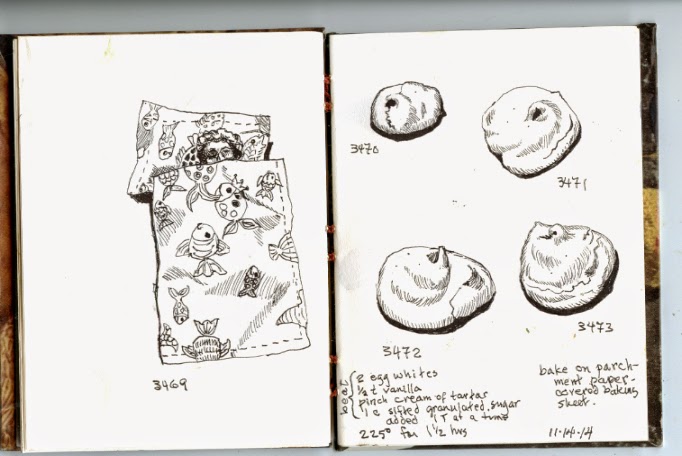 3469
3470
3471
3472
3473
beat
2 egg whites
t vanilla
pinch cream of tartar
1 c sifted granulated sugar
added 1 T at a time
225° for 1 1/2 hrs
bake on parch-
ment paper-
covered baking
sheet.
11.14.14